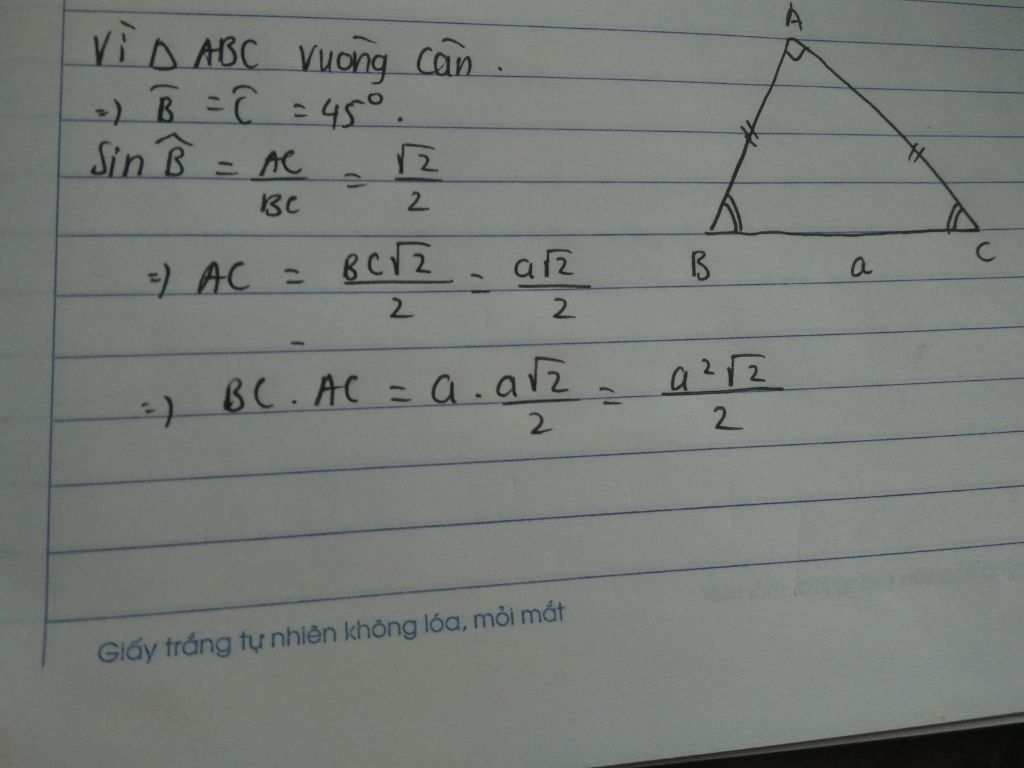 Vì Δ ABC vuông cân.
=) B̂ = Ĉ = 45°.
Sin B̂ = AC/BC = √2/2
=) AC = BC√2/2 = a√2/2
=) BC . AC = a . a√2/2 = a²√2/2
A
B a C
Giấy trắng tự nhiên không lóa, mỏi mắt